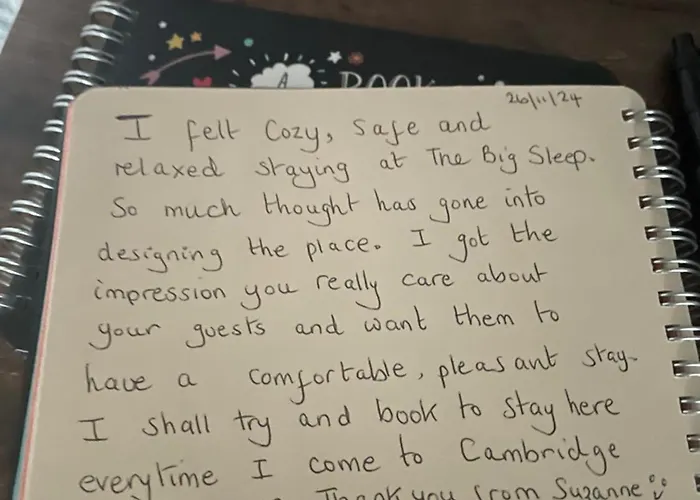 A BOOK
26/11/24
I felt Cozy, safe and
relaxed staying at The Big Sleep.
So much thought has gone into
designing the place. I got the
impression you really care about
your guests and want them to
have a comfortable, pleasant stay.
I shall try and book to stay here
everytime I come to Cambridge
Thank you from Suzanne